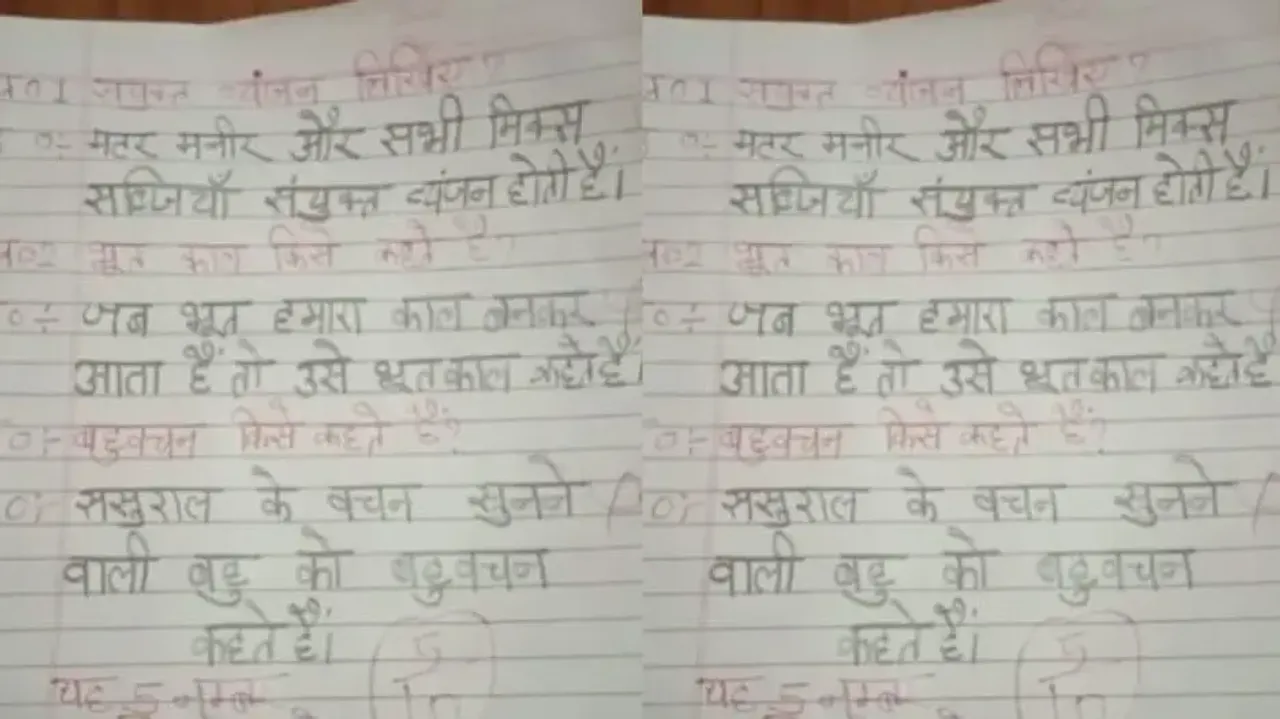 प्र०1 संयुक्त व्यंजन लिखिए?
उ०:- मटर मनीर और सभी मिक्स
सब्जियाँ संयुक्त व्यंजन होती हैं।
प्र०2 भूत काल किसे कहते है?
उ०:- जब भूत हमारा काल बनकर
आता हैं तो उसे भूतकाल कहते हैं।
प्र०:- बहुवचन किसे कहते हैं?
उ०:- ससुराल के वचन सुनने
वाली बहु को बहुवचन
कहते हैं।
यह 5 नम्बर
5
10
प्र०1 संयुक्त व्यंजन लिखिए?
उ०:- मटर मनीर और सभी मिक्स
सब्जियाँ संयुक्त व्यंजन होती हैं।
प्र०2 भूत काल किसे कहते है?
उ०:- जब भूत हमारा काल बनकर
आता हैं तो उसे भूतकाल कहते हैं
प्र०:- बहुवचन किसे कहते हैं?
उ०:- ससुराल के वचन सुनने
वाली बहु को बहुवचन
कहते हैं।
यह 5 नम्बर
5
10